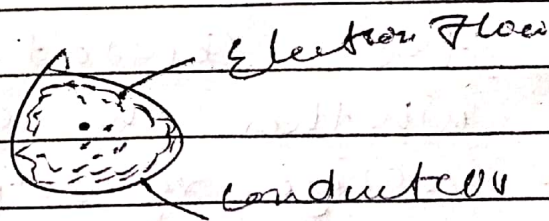 Electron Flow
conductor